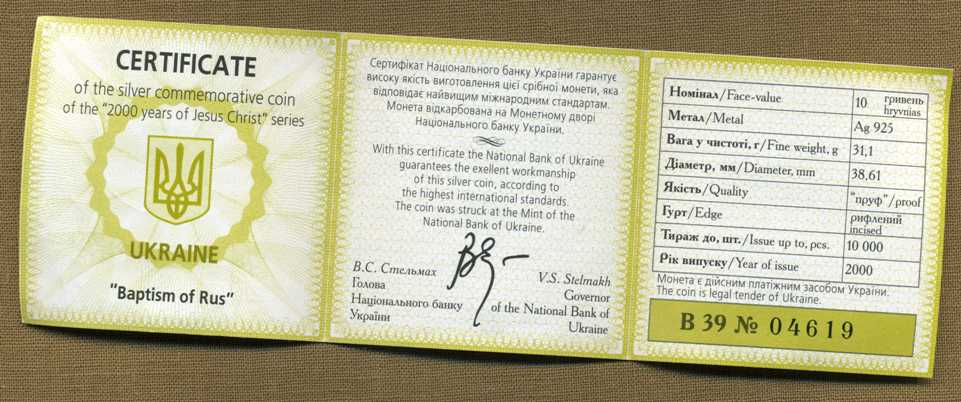 CERTIFICATE
of the silver commemorative coin
of the "2000 years of Jesus Christ" series
UKRAINE
"Baptism of Rus"
Сертифікат Національного банку України гарантує
високу якість виготовлення цієї срібної монети, яка
відповідає найвищим міжнародним стандартам.
Монета відкарбована на Монетному дворі
Національного банку України.
With this certificate the National Bank of Ukraine
guarantees the exellent workmanship
of this silver coin, according to
the highest international standards.
The coin was struck at the Mint of the
National Bank of Ukraine.
В.С. Стельмах
Голова
Національного банку
України
V.S. Stelmakh
Governor
of the National Bank of
Ukraine
Номінал/Face-value 10 гривень hryvnias
Метал/Metal Ag 925
Вага у чистоті, г/Fine weight, g 31,1
Діаметр, мм/Diameter, mm 38,61
Якість/Quality "пруф"/proof
Гурт/Edge рифлений incised
Тираж до, шт./Issue up to, pcs. 10 000
Рік випуску/Year of issue 2000
Монета є дійсним платіжним засобом України.
The coin is legal tender of Ukraine.
В 39 № 04619